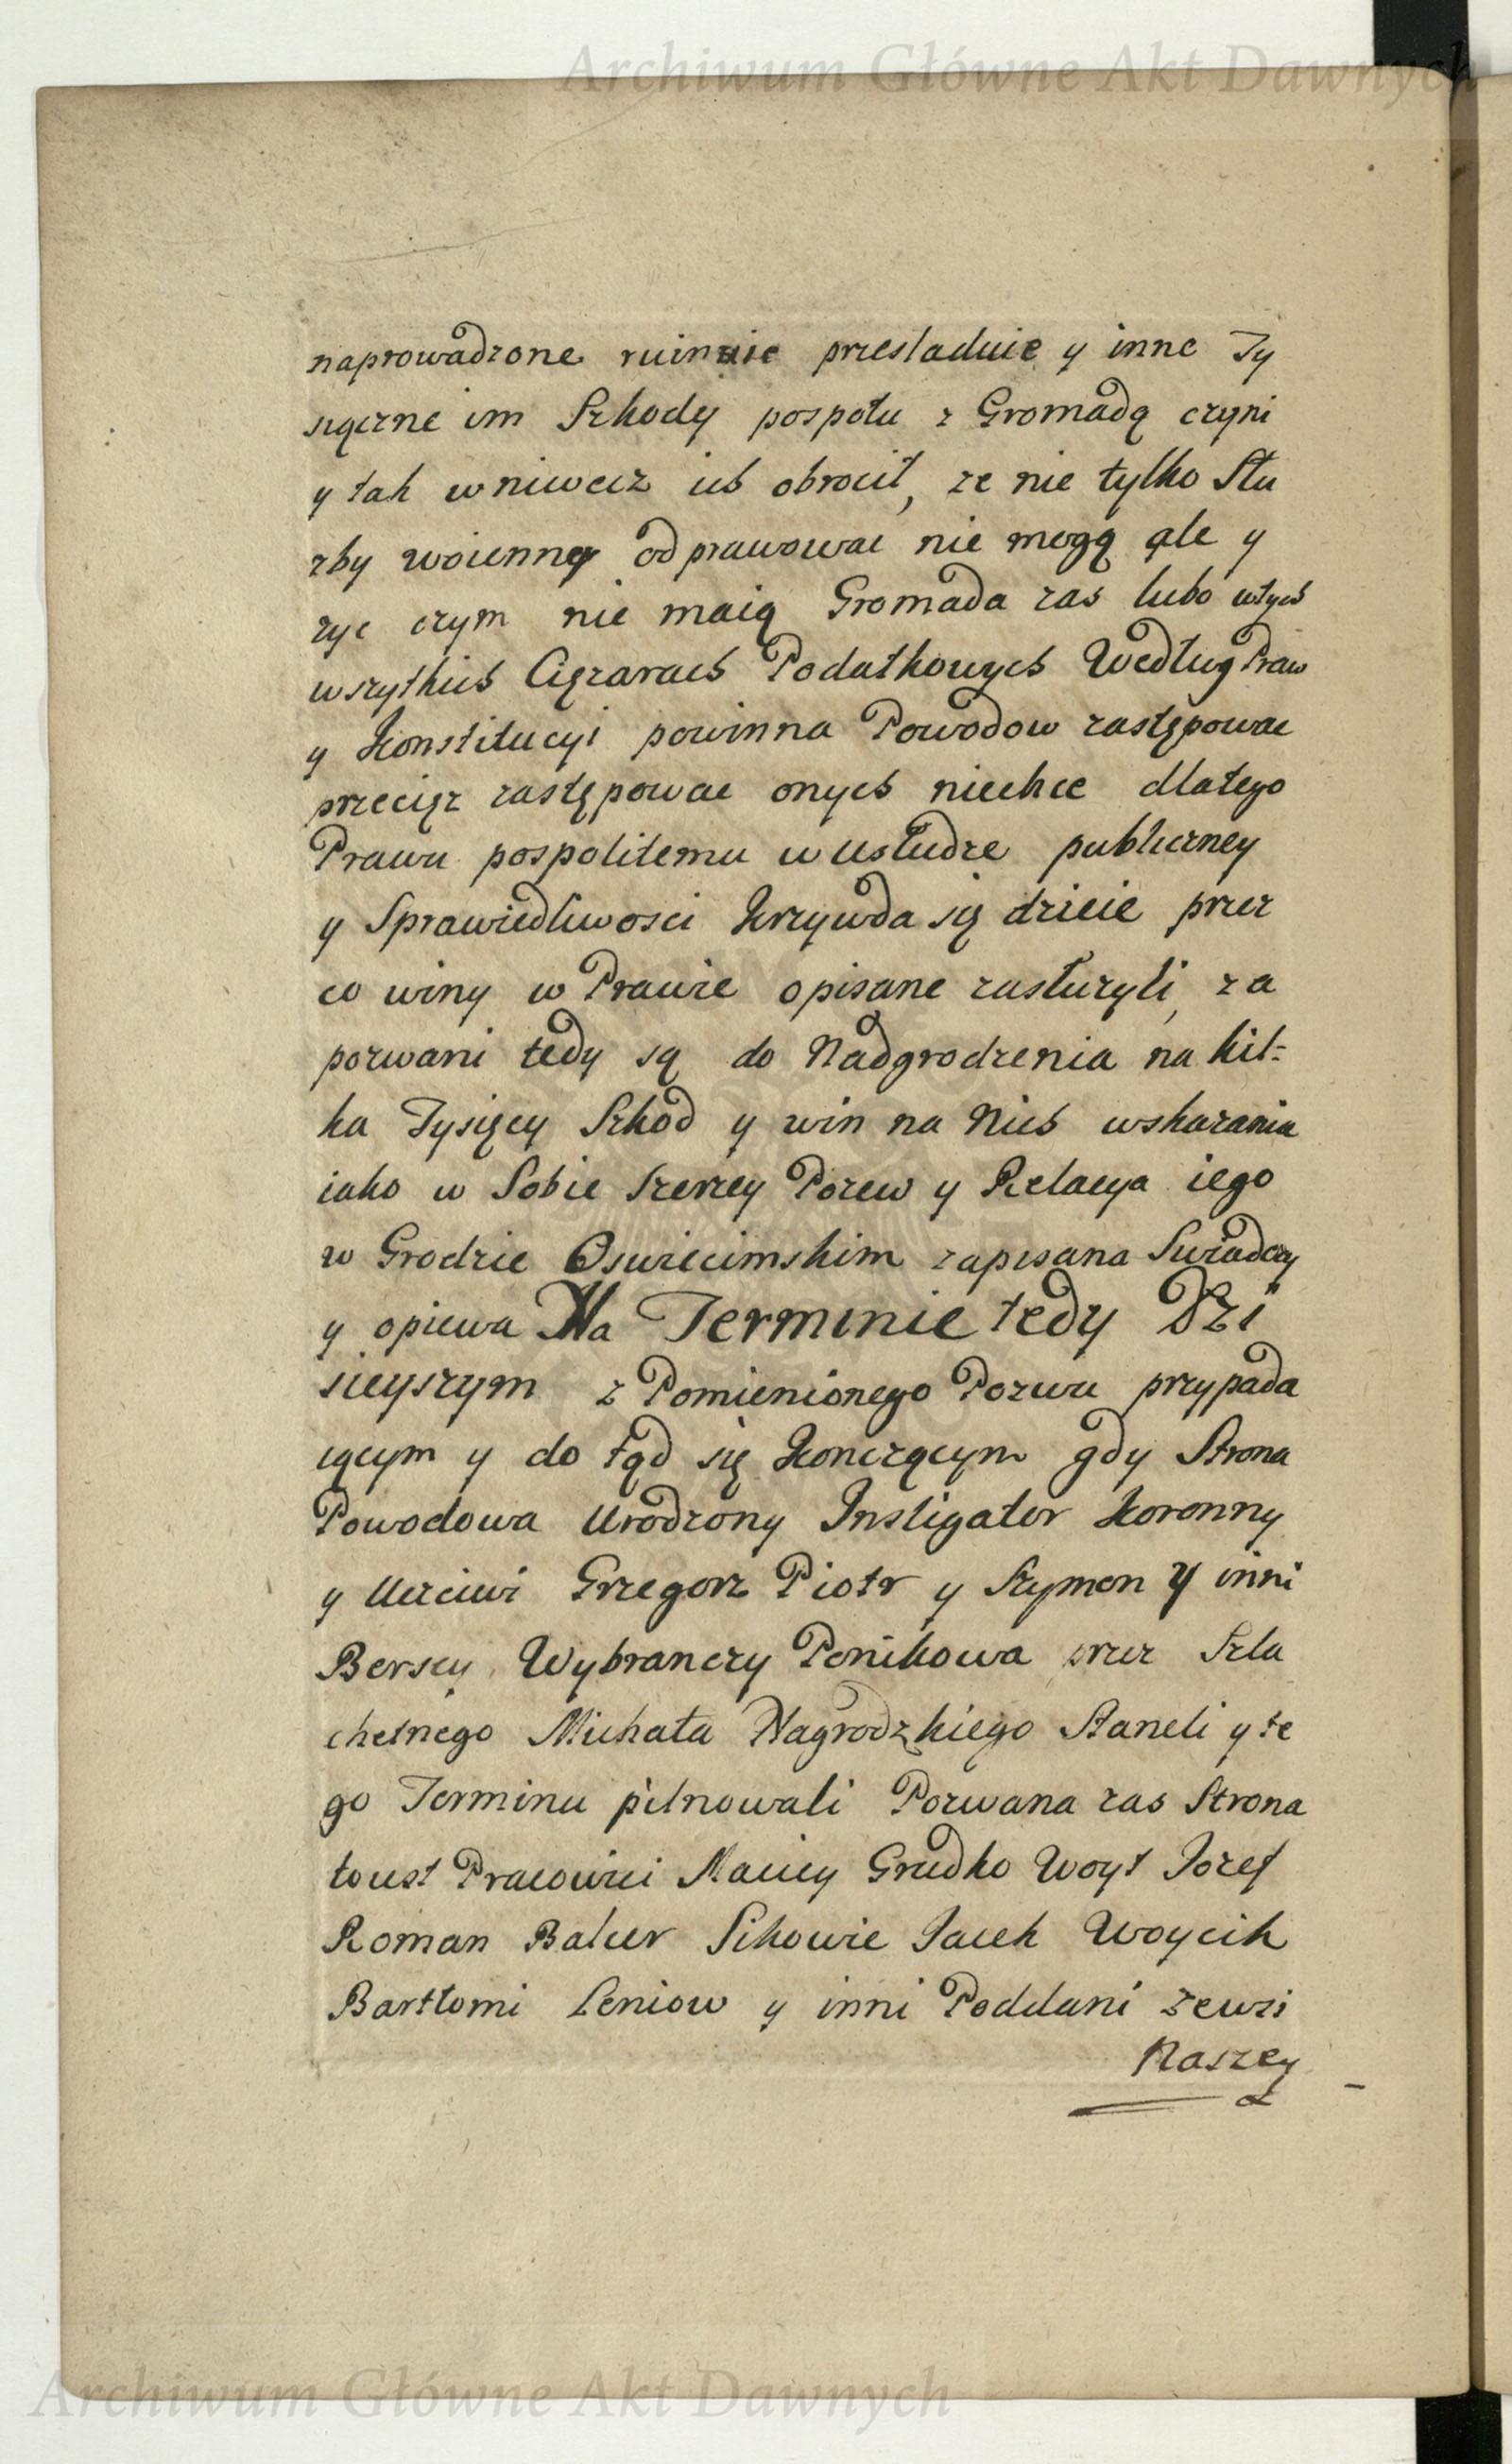 Archiwum Główne Akt Dawnych
naprowadzone ruinuie przesladuie y inne Ty
siączne im Szkody pospołu z Gromadą czyni
y tak wniwecz ich obrocił, ze nie tylko Słu
zby woienney odprawowac nie mogą ale y
zyc czym nie maią Gromada zas lubo wtych
wszytkich Cięzarach Podatkowych Według Praw
y Konstitucyi powinna Powodow zastępowac
przecięz zastępowac onych niechce dlatego
Prawu pospolitemu w usłudze publiczney
y Sprawiedliwosci Krzywda się dzieie przez
co winy w Prawie opisane zasłuzyli, za
pozwani tedy są do Nadgrodzenia na kil=
ka Tysięcy Szkod y win na Nich wskazania
iako w Sobie szerzey Pozew y Relacya iego
w Grodzie Oswiecimskim zapisana Swiadczy
y opiewa Na Terminie tedy Dzi
sieyszym z Pomienionego Pozwu przypada
iącym y do tąd się Konczącym gdy Strona
Powodowa Urodzony Instigator Koronny
y Uczciwi Grzegorz Piotr y Szymon y inni
Berscy Wybranczy Ponikowa przez Szla
chetnego Michała Nagrodzkiego Staneli y te
go Terminu pilnowali Pozwana zas Strona
toiest Pracowici Maciey Grudko Woyt Jozef
Roman Balcer Sikowie Jacek Woycik
Bartłomi Leniow y inni Poddani zewsi
Naszey
Archiwum Główne Akt Dawnych